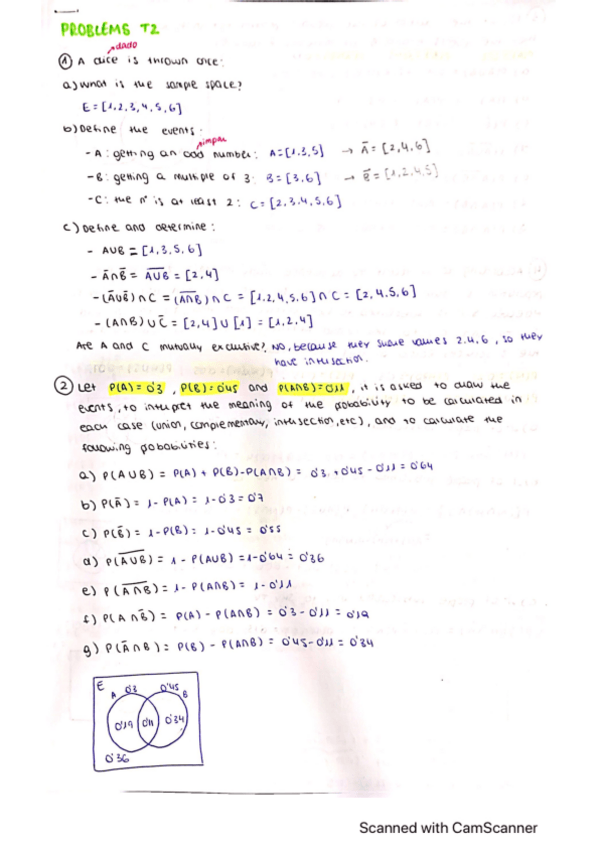 PROBLEMS T2
dado
① A dice is thrown once:
a) What is the sample space?
E = [1,2,3,4,5,6]
b) Define the events:
impar
- A: getting an odd number: A = [1,3,5] → Ā = [2,4,6]
- B: getting a multiple of 3: B = [3,6] → B̄ = [1,2,4,5]
- C: the nº is at least 2: C = [2,3,4,5,6]
c) Define and determine:
- A∪B = [1,3,5,6]
- Ā∩B̄ = \overline{A∪B} = [2,4]
- (Ā∪B̄)∩C = (\overline{A∩B})∩C = [1,2,4,5,6]∩C = [2,4,5,6]
- (A∩B)∪C̄ = [2,4]∪[1] = [1,2,4]
Are A and C mutually exclusive? NO, because they share values 2,4,6, so they
have intersection.
② Let P(A) = 0'3, P(B) = 0'45 and P(A∩B) = 0'11, it is asked to draw the
events, to interpret the meaning of the probability to be calculated in
each case (union, complementary, intersection, etc), and to calculate the
following probabilities:
a) P(A∪B) = P(A) + P(B) - P(A∩B) = 0'3 + 0'45 - 0'11 = 0'64
b) P(Ā) = 1 - P(A) = 1 - 0'3 = 0'7
c) P(B̄) = 1 - P(B) = 1 - 0'45 = 0'55
d) P(\overline{A∪B}) = 1 - P(A∪B) = 1 - 0'64 = 0'36
e) P(\overline{A∩B}) = 1 - P(A∩B) = 1 - 0'11
f) P(A∩B̄) = P(A) - P(A∩B) = 0'3 - 0'11 = 0'19
g) P(Ā∩B) = P(B) - P(A∩B) = 0'45 - 0'11 = 0'34
E A 0'3 0'45 B
0'19 0'11 0'34
0'36
Scanned with CamScanner